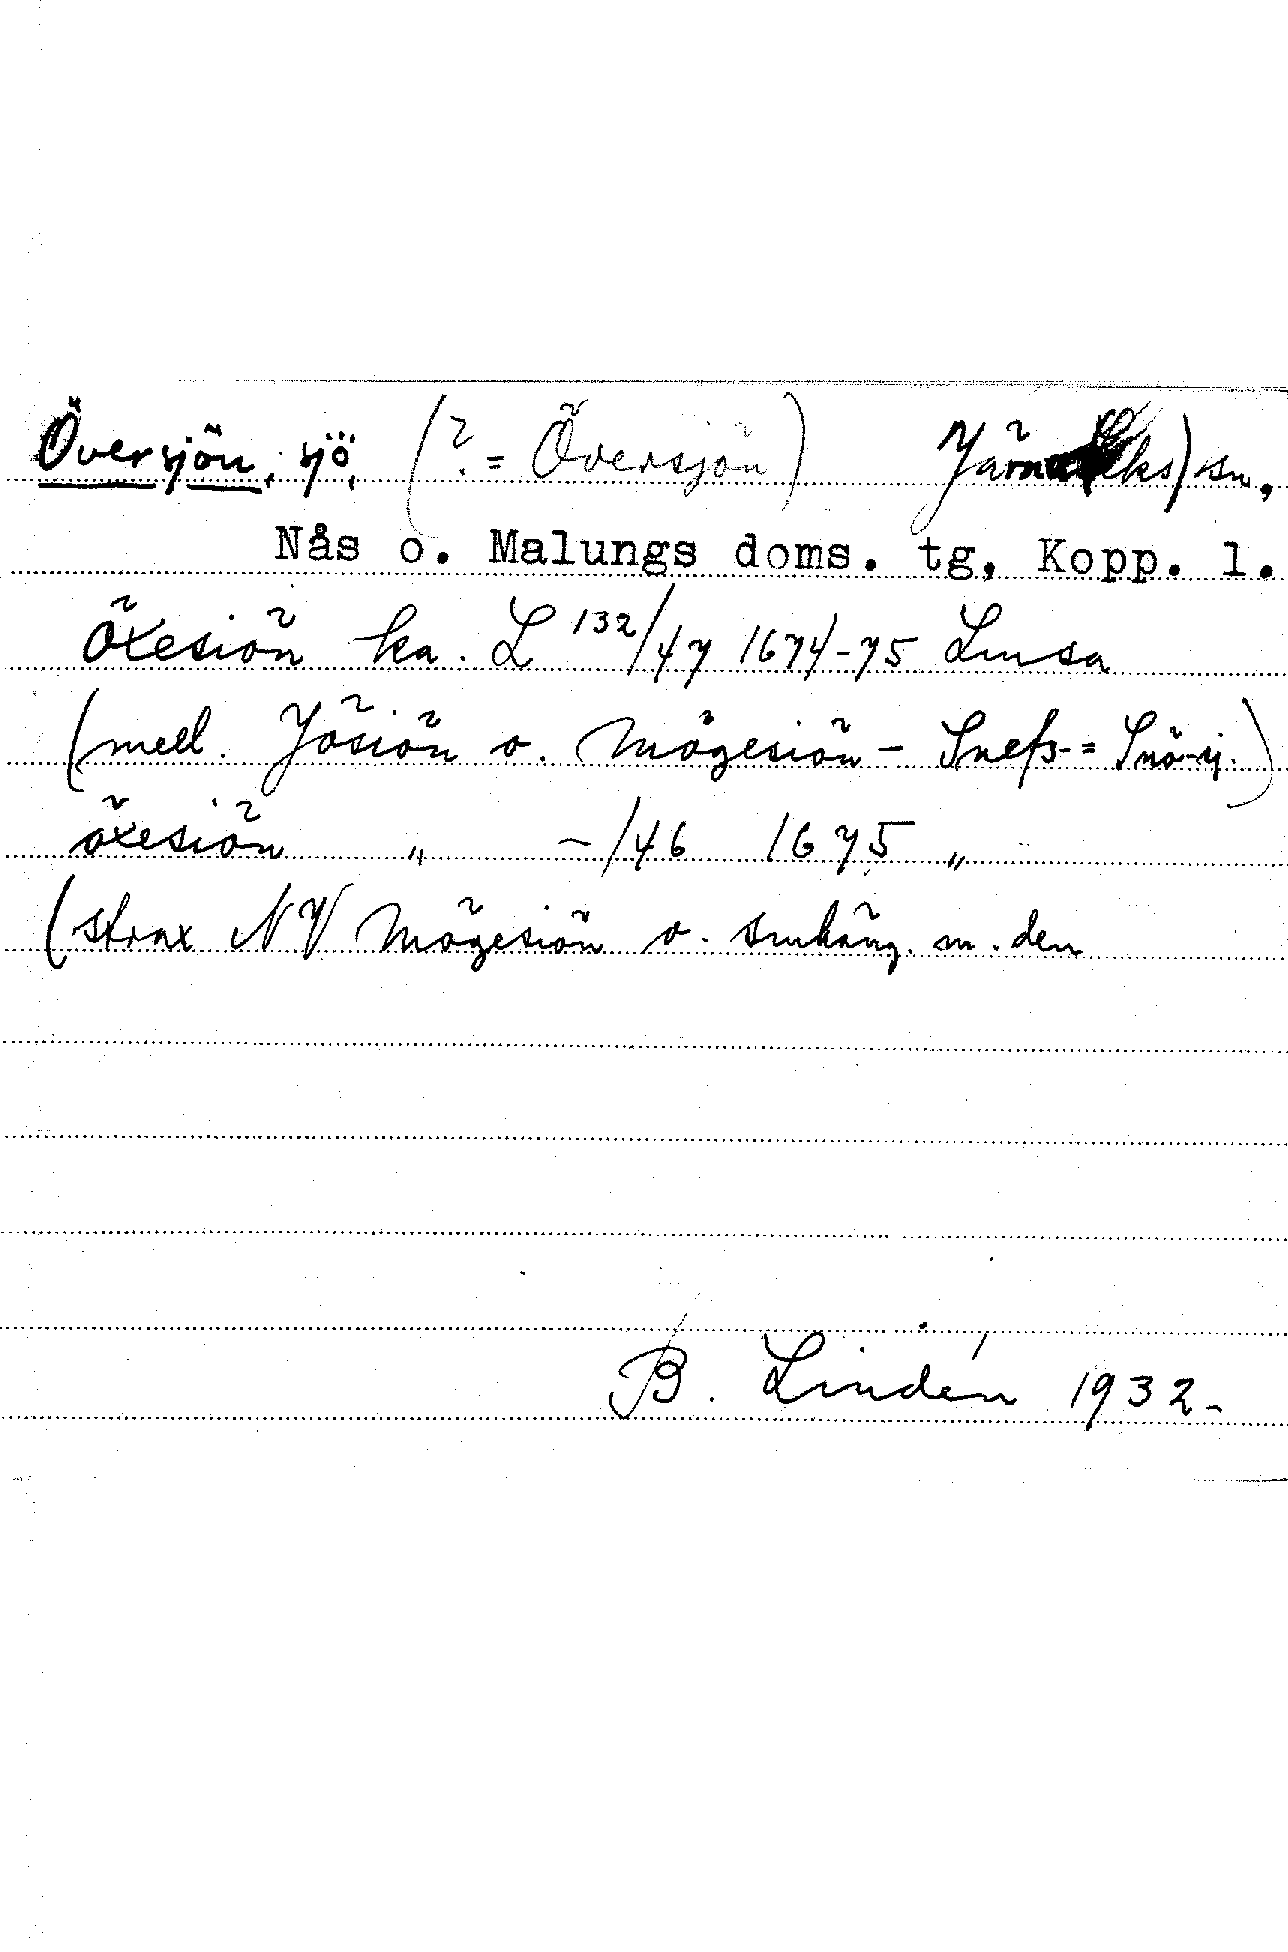 Översjön, sjö, (?. = Översjön) Järna sn,
Nås o. Malungs doms. tg, Kopp. l.
Öxesiön ka. L 132/47 1674-75 Lmsa
(mell. Jösiön o. Mögesiön - Snefs- = Snö-sj.)
öxesiön " -/46 1675 "
(strax NV Mögesiön o. smhäng. m. den
B. Lindén 1932-